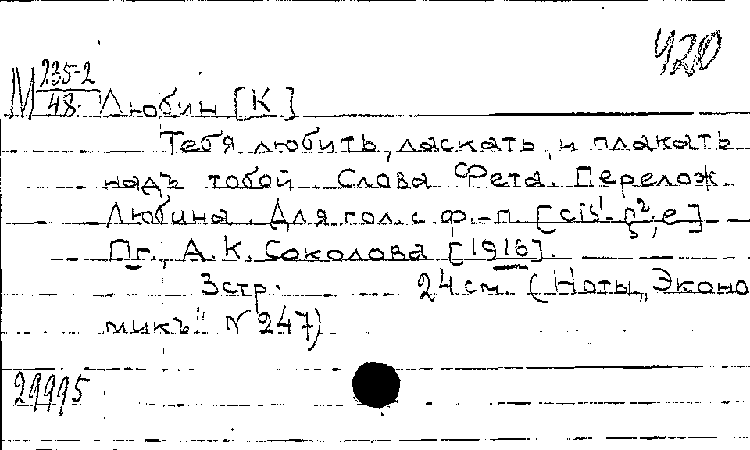 420
М 235-2/48. Любин [К]
Тебя любить, ласкать, и плакать
надъ тобой. Слова Фета. Перелож.
Любина. Для гол. с ф.-п. [cis¹- g²; e]
Пг., А. К. Соколова [1916].
3 стр. 24 см. (Ноты „Эконо
микъ" № 247)
29995